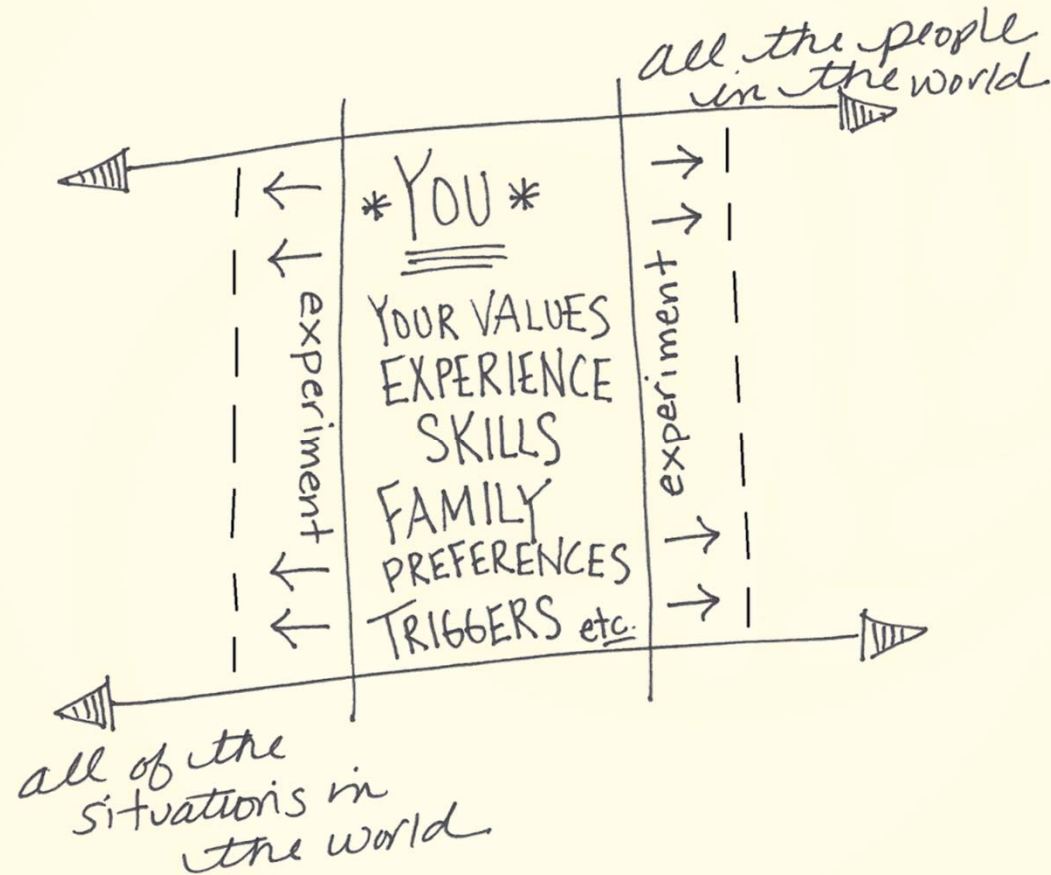 all the people
in the world
* YOU *
YOUR VALUES
EXPERIENCE
SKILLS
FAMILY
PREFERENCES
TRIGGERS etc.
experiment
experiment
all of the
situations in
the world